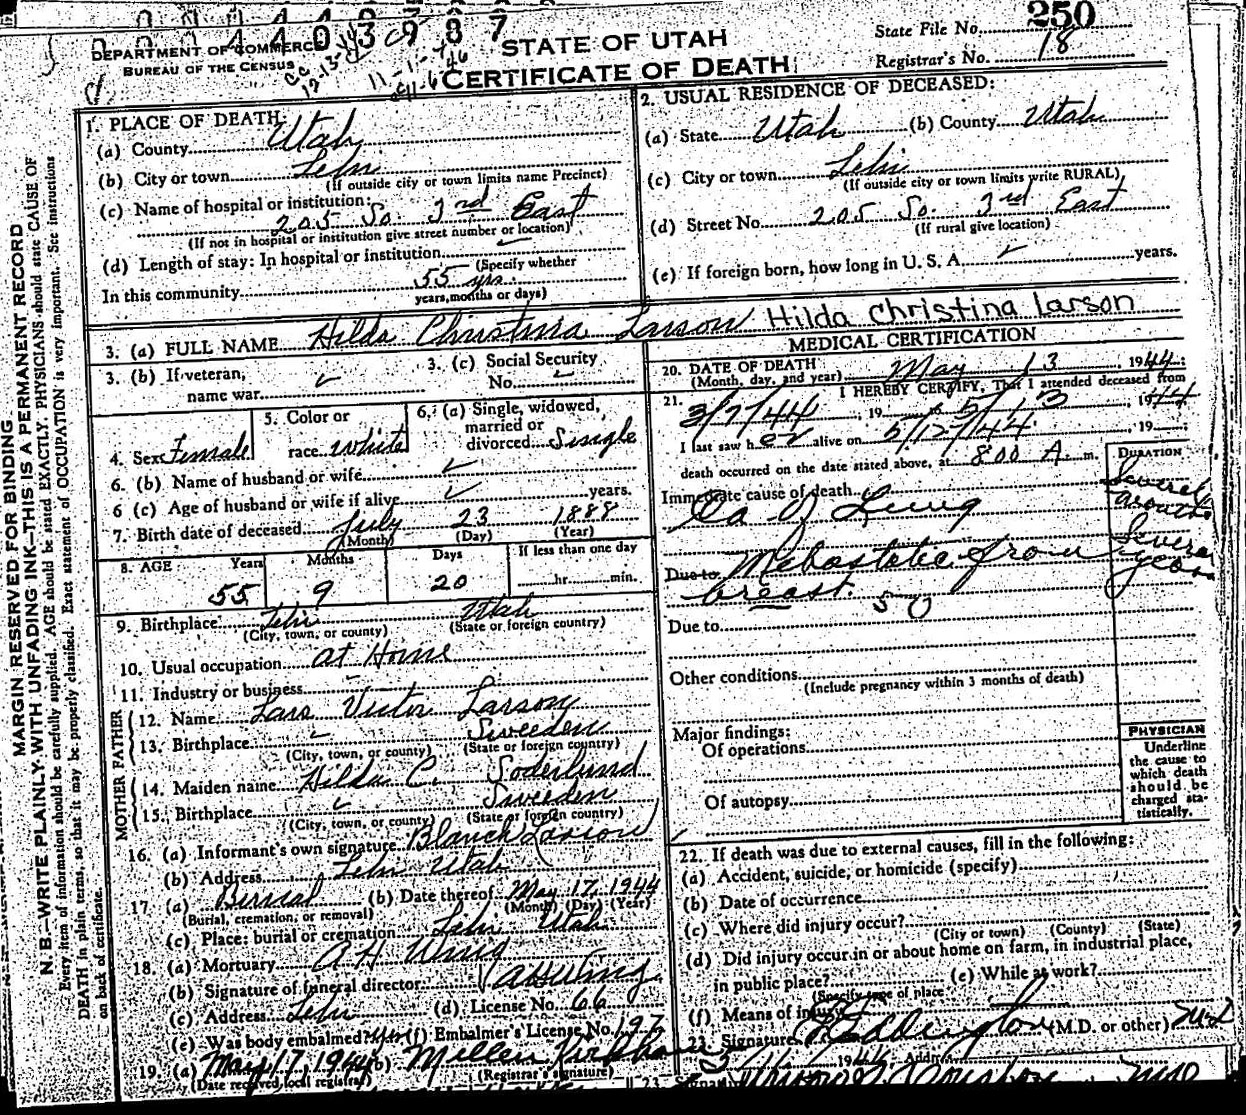 DEPARTMENT OF COMMERCE
BUREAU OF THE CENSUS
STATE OF UTAH
CERTIFICATE OF DEATH
State File No. 250
Registrar's No. 18
MARGIN RESERVED FOR BINDING
N. B.—WRITE PLAINLY WITH UNFADING INK—THIS IS A PERMANENT RECORD
Every item of information should be carefully supplied. AGE should be stated EXACTLY. PHYSICIANS should state CAUSE OF
DEATH in plain terms, so that it may be properly classified. Exact statement of OCCUPATION is very important. See instructions
on back of certificate.
1. PLACE OF DEATH
(a) County Utah
(b) City or town Lehi
(If outside city or town limits name Precinct)
(c) Name of hospital or institution:
205 So. 3rd East
(If not in hospital or institution give street number or location)
(d) Length of stay: In hospital or institution
(Specify whether
In this community 55 yrs.
years, months or days)
2. USUAL RESIDENCE OF DECEASED:
(a) State Utah (b) County Utah
(c) City or town Lehi
(If outside city or town limits write RURAL)
(d) Street No. 205 So. 3rd East
(If rural give location)
(e) If foreign born, how long in U. S. A. years.
3. (a) FULL NAME Hilda Christina Larson Hilda Christina Larson
3. (b) If veteran,
name war
3. (c) Social Security
No.
4. Sex Female
5. Color or
race White
6. (a) Single, widowed,
married or
divorced Single
6. (b) Name of husband or wife
6 (c) Age of husband or wife if alive years.
7. Birth date of deceased July 23 1888
(Month) (Day) (Year)
8. AGE Years Months Days If less than one day
55 9 20 hr. min.
9. Birthplace Lehi Utah
(City, town, or county) (State or foreign country)
10. Usual occupation at Home
11. Industry or business
FATHER
12. Name Lars Victor Larson
13. Birthplace Sweeden
(City, town, or county) (State or foreign country)
MOTHER
14. Maiden name Hilda C. Soderlund
15. Birthplace Sweeden
(City, town, or county) (State or foreign country)
16. (a) Informant's own signature Blanch Larson
(b) Address Lehi Utah
17 (a) Burial (b) Date thereof May 17 1944
(Burial, cremation, or removal) (Month) (Day) (Year)
(c) Place: burial or cremation Lehi Utah
18. (a) Mortuary
(b) Signature of funeral director
(c) Address Lehi (d) License No. 66
(e) Was body embalmed? yes (f) Embalmer's License No. 197
19. (a) May 17, 1944 (b)
(Date received local registrar) (Registrar's signature)
MEDICAL CERTIFICATION
20. DATE OF DEATH May 13 1944
(Month, day, and year)
21. I HEREBY CERTIFY, That I attended deceased from
3/7/44, 19 to 5/13, 1944
I last saw her alive on 5/12/44, 19
death occurred on the date stated above, at 8:00 A. m.
DURATION
Immediate cause of death
Ca of Lung
Several months
Due to Metastatic from breast. 50
Several years
Due to
Other conditions
(Include pregnancy within 3 months of death)
Major findings:
Of operations
Of autopsy
PHYSICIAN
Underline
the cause to
which death
should be
charged sta-
tistically.
22. If death was due to external causes, fill in the following:
(a) Accident, suicide, or homicide (specify)
(b) Date of occurrence
(c) Where did injury occur?
(City or town) (County) (State)
(d) Did injury occur in or about home on farm, in industrial place,
in public place? (e) While at work?
(Specify type of place
(f) Means of injury
23. Signature Eddington (M.D. or other) M.D